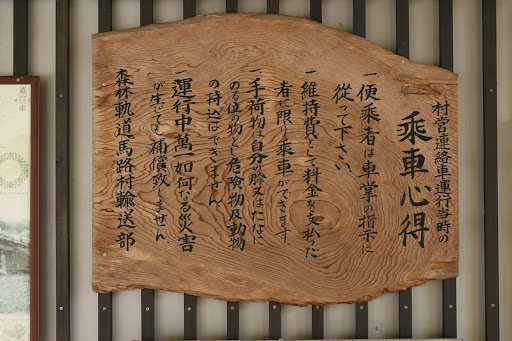 村営連絡車運行当時の
乗車心得
一便乗者は車掌の指示に
従って下さい
一維持費として料金を支払った
者に限り乗車ができます
一手荷物は自分の膝又はたなに
のる位の物とし危険物及動物
の持込はできません
一運行中萬一如何なる災害
が生じても補償致しません
森林軌道馬路村輸送部
遺産